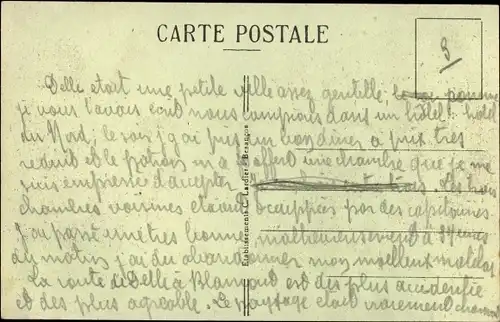 CARTE POSTALE
8
Delle était une petite ville assez gentille, comme
je vous l'avais écrit nous campions dans un hôtel: hôtel
du Nord, le soir j'ai pris un bon diner à prix très
réduit et le patron m'a offert une chambre que je me
suis empressé d'accepter. Les trois
chambres voisines étaient occupées par des capitaines
J'ai passé une très bonne malheureusement à 3 heures
du matin j'ai dû abandonner mon moelleux matelas
La route de Delle à Blamont est des plus accidentée
et des plus agréable. Le paysage était vraiment
Etablissements C. Lardier - Besançon